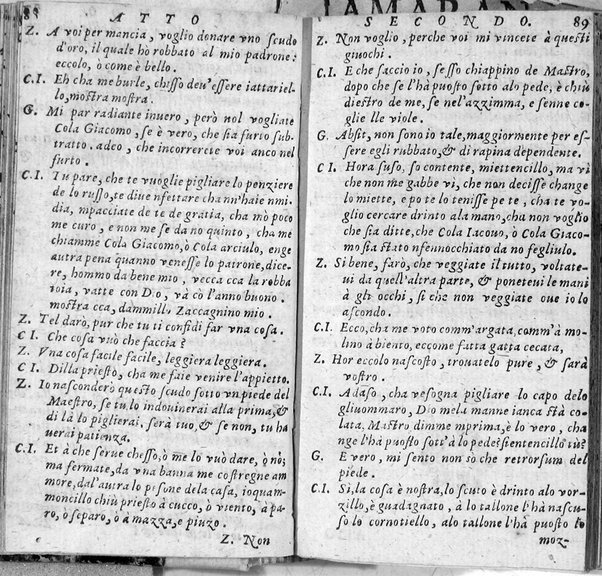 88 ATTO
Z. A voi per mancia, voglio donare vno scudo
d'oro, il quale hò robbato al mio padrone:
eccolo, ò come è bello.
C.I. Eh cha me burle, chisso deu'essere iattariel-
lo, mostra mostra.
G. Mi par radiante inuero, però nol vogliate
Cola Giacomo, se è vero, che sia furto sub-
tratto. adeo, che incorrerete voi anco nel
furto.
C.I. Tu pare, che te vuoglie pigliare lo penziere
de lo russo, te diue nfettare cha nn'haie nmi-
dia, mpacciate de te de gratia, cha mò poco
me curo, e non me se da no quinto, cha me
chiamme Cola Giacomo, ò Cola arciulo, enge
autra pena quanno venesse lo patrone, dice-
re, hommo da bene mio, vecca cca la robba
voia, vatte con Dio, và cò l'anno buono.
mostra cca, dammillo Zaccagnino mio.
Z. Tel darò, pur che tu ti confidi far vna cosa.
C I. Che cosa vuò che faccia?
Z. Vna cosa facile facile, leggiera leggiera.
C I. Dilla priesto, cha me faie venire l'appietto.
Z. Io nasconderò questo scudo sotto vn piede del
Maestro, se tu lo indouinerai alla prima, &
di là lo piglierai, serà tuo, & se non, tu ha
uerai patienza.
C.I. Et à che serue chesso, ò me lo vuò dare, ò nò;
ma fermate, da vna banna me costregne am
more, dal'autra lo pesone dela casa, ioquam-
moncillo chiù priesto à cucco, ò viento, à pa-
ro, ò sparo, ò à mazza, e piuzo.
Z. Non
SECONDO. 89
Z. Non voglio, perche voi mi vincete à questi
giuochi.
C.I. E che faccio io, se sso chiappino de Mastro,
dopo che se l'hà puosto sotto alo pede, è chiù
diestro de me, se nel'azzimma, e senne co-
glie lle viole.
G. Absit, non sono io tale, maggiormente per es-
sere egli rubbato, & di rapina dependente.
C I. Hora suso, so contente, miettencillo, ma vi
che non me gabbe vi, che non decisse change
lo miette, e po te lo tenisse pe te, cha te vo-
glio cercare drinto ala mano, cha non voglio
che sia ditte, che Cola Iacouo, ò Cola Giaco-
mo sia stato nfennocchiato da no fegliulo.
Z. Si bene, farò, che veggiate il tutto, voltate-
ui da quell'altra parte, & poneteui le mani
à gli occhi, sì che non veggiate oue io lo
ascondo.
C.I. Ecco, cha me voto comm'argata, comm'à mo-
lino à biento, eccome fatta gatta cecata,
Z. Hor eccolo nascosto, trouatelo pure, & sarà
vostro.
C.I. Adaso, cha vesogna pigliare lo capo delo
gliuommaro, Dio me la manne ianca stà co-
lata, Mastro dimme mprima, è lo vero, cha
nge l'hà puosto sott'à lo pede? sientencillo tù?
G. E vero, mi sento non sò che retrorsum del
piede.
C.I. Sì, la cosa è nostra, lo scuto è drinto alo vor-
zillo, è guadagnato, à lo tallone l'hà nascu-
so lo cornotiello, alo tallone l'hà puosto lo
moz-